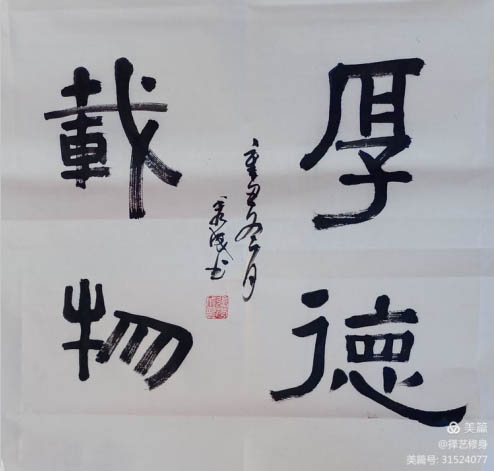 厚德
載物
辛丑冬月
美篇
@择艺修身
美篇号: 31524077